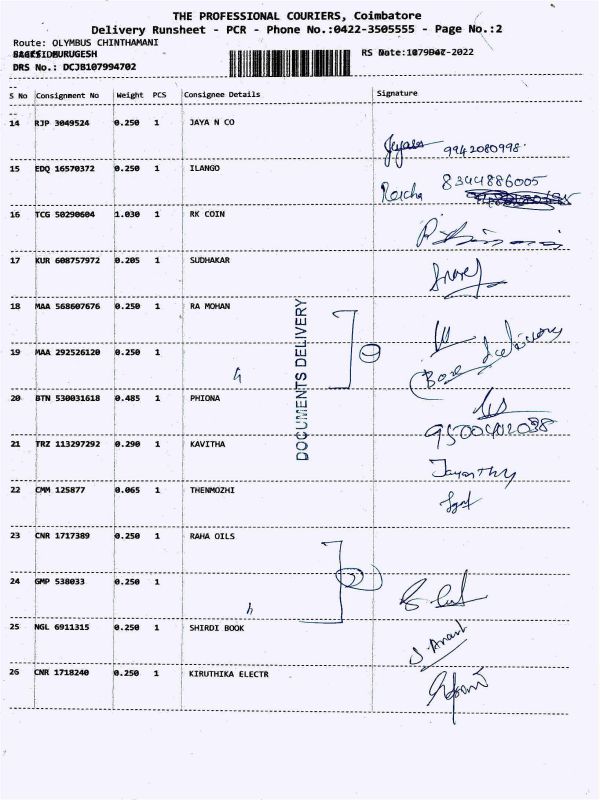 THE PROFESSIONAL COURIERS, Coimbatore
Delivery Runsheet - PCR - Phone No.:0422-3505555 - Page No.:2
Route: OLYMBUS CHINTHAMANI
RS Date: -2022
DRS No.: DCJB107994702
S No Consignment No Weight PCS Consignee Details Signature
14 RJP 3049524 0.250 1 JAYA N CO
9942080998
15 EDQ 16570372 0.250 1 ILANGO
8344886005
16 TCG 50290604 1.030 1 RK COIN
17 KUR 608757972 0.205 1 SUDHAKAR
18 MAA 568607676 0.250 1 RA MOHAN
19 MAA 292526120 0.250 1
DOCUMENTS DELIVERY
20 BTN 530031618 0.485 1 PHIONA
21 TRZ 113297292 0.290 1 KAVITHA
22 CMM 125877 0.065 1 THENMOZHI
23 CNR 1717389 0.250 1 RAHA OILS
24 GMP 538033 0.250 1
25 NGL 6911315 0.250 1 SHIRDI BOOK
J. Anant
26 CNR 1718240 0.250 1 KIRUTHIKA ELECTR